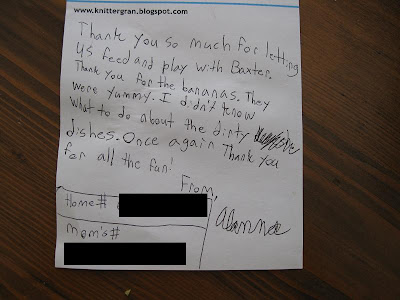 www.knittergran.blogspot.com
Thank you so much for letting
us feed and play with Baxter.
Thank you for the bananas. They
were yummy. I didn't know
what to do about the dirty
dishes. Once again Thank you
for all the fun!
From,
Home#
Mom's#